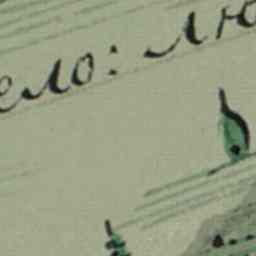 ело: лю